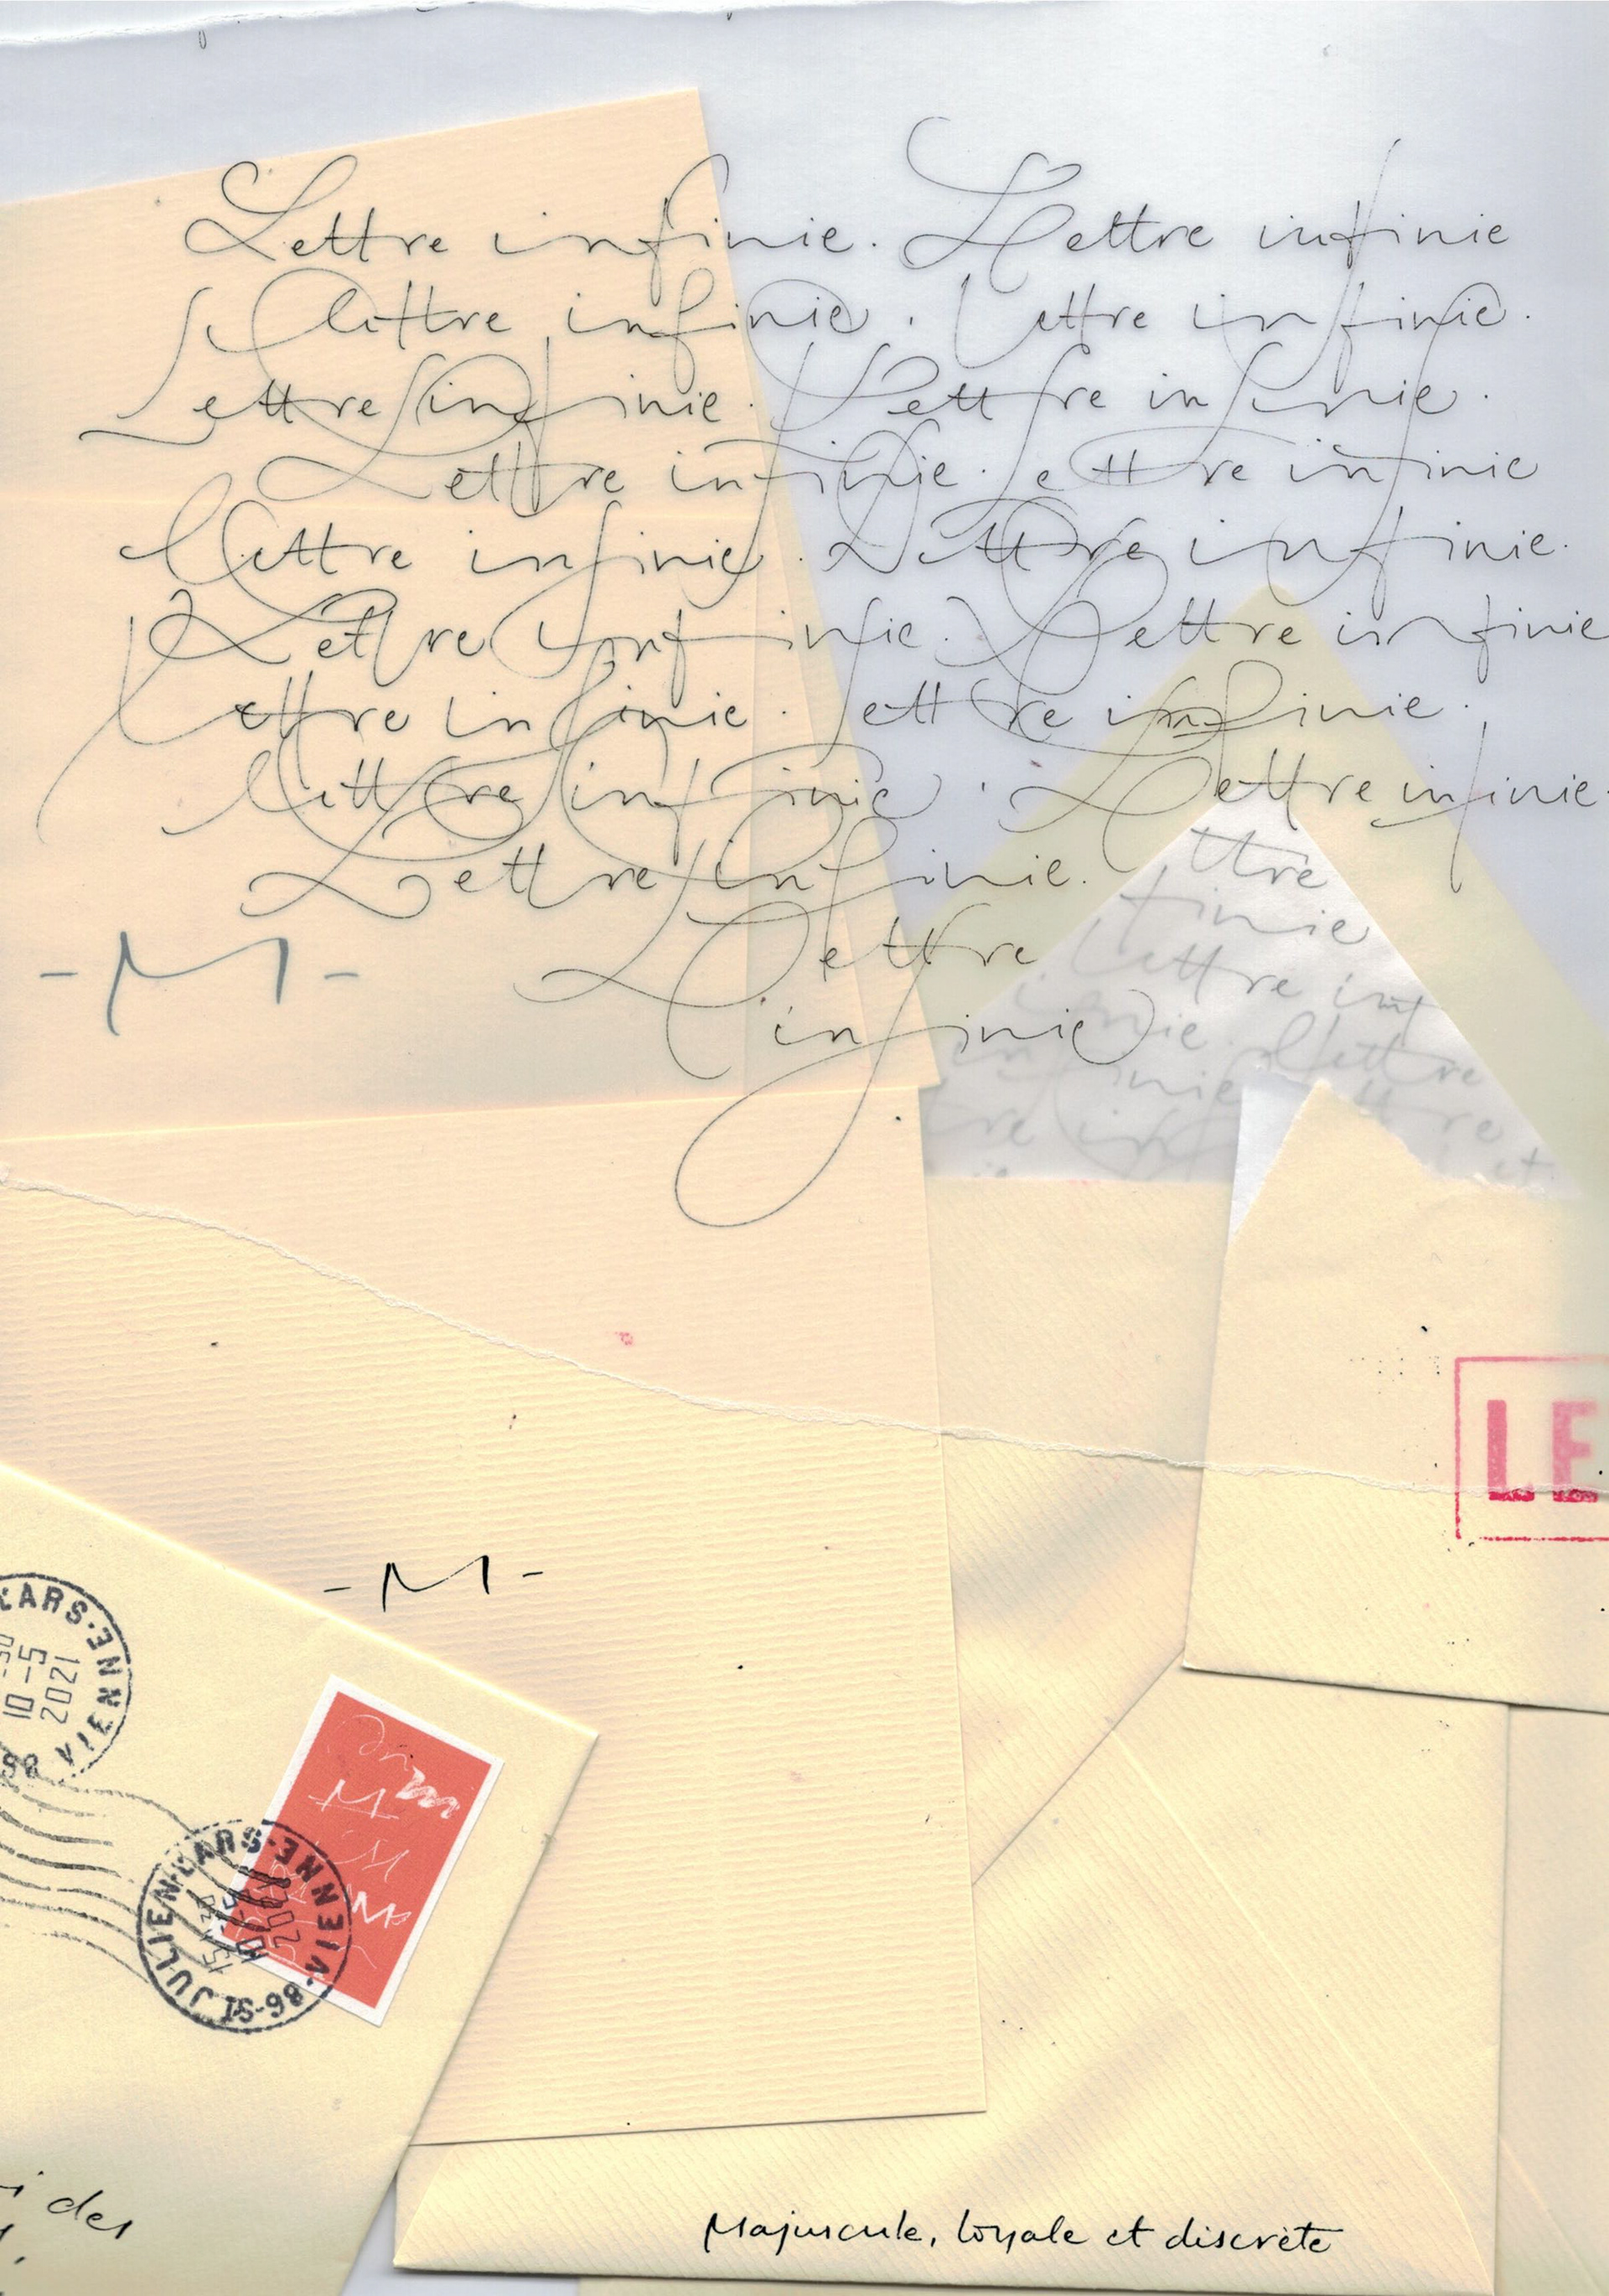 Lettre infinie. Lettre infinie
lettre infinie. Lettre infinie.
Lettre infinie. Lettre infinie.
Lettre infinie. Lettre infinie
Lettre infinie. Lettre infinie.
Lettre infinie. Lettre infinie
Lettre infinie. Lettre infinie.
lettre infinie. Lettre infinie.
Lettre infinie.
Lettre
infinie
ttre
finie
Lettre inf
inie. Lettre
inie
-M-
LE
-M-
LARS-VIENNE
10-5
2021
86
ST JULIEN-L'ARS-VIENNE-86
M
des
Majuscule, loyale et discrète